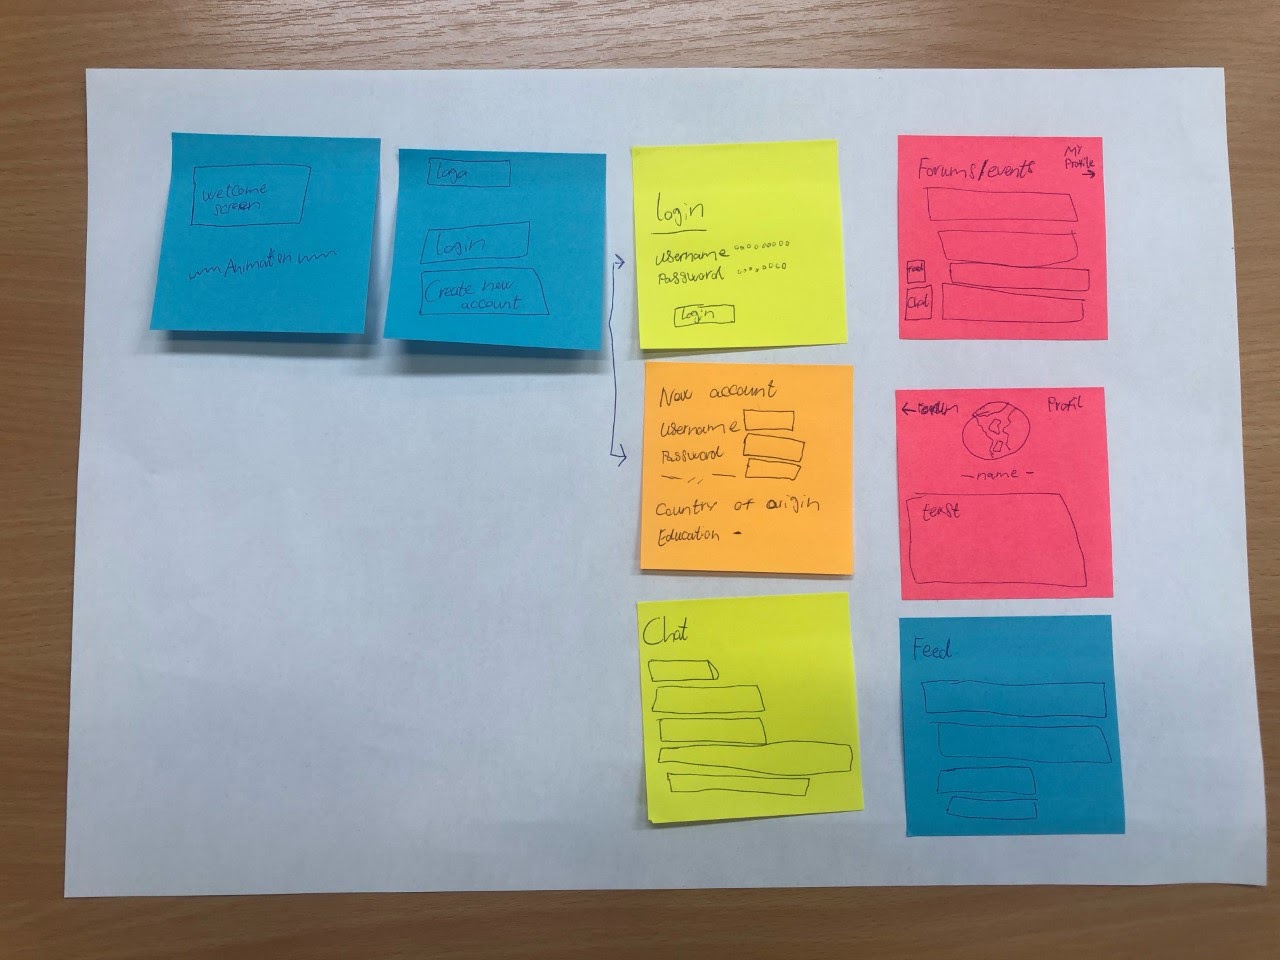 welcome
screen
Animation
loga
login
Create new
account
login
username
Password
login
New account
username
Password
Country of origin
Education -
Chat
Forums/events
My
Profile
Feed
Chat
Profil
-name-
Feed